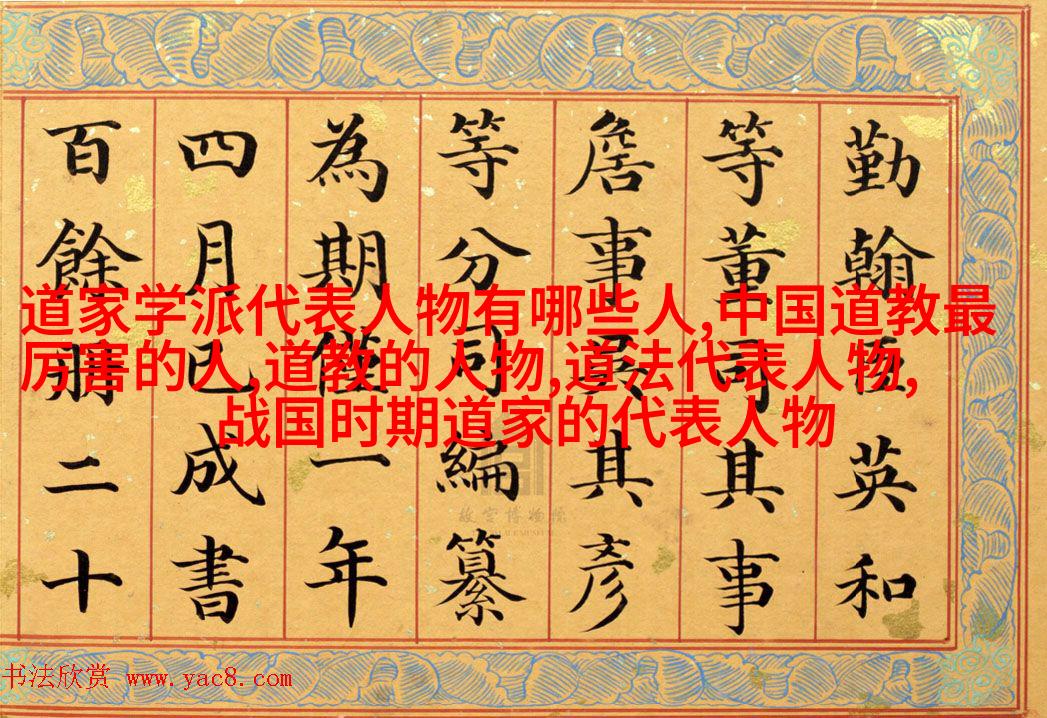 勤翰英和
等董司其事
詹事吳其彥
等分司編纂
為期僅一年
四月已成書
百餘冊二十
道家学派代表人物有哪些人,中国道教最
厉害的人,道教的人物,道法代表人物,
战国时期道家的代表人物
故宫博物院
书法欣赏 www.yac8.com